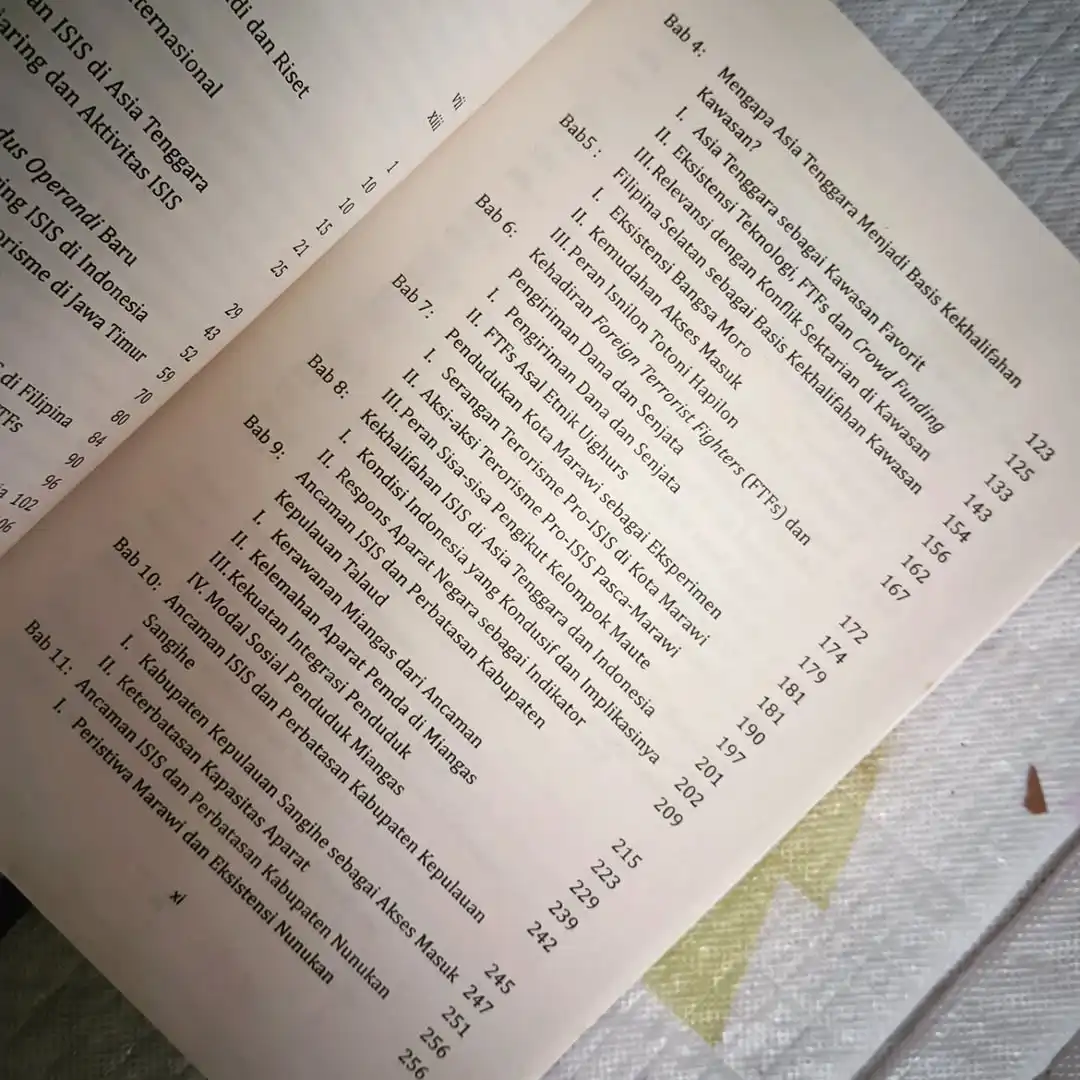 di dan Riset
ternasional
an ISIS di Asia Tenggara
aring dan Aktivitas ISIS
dus Operandi Baru
ring ISIS di Indonesia
orisme di Jawa Timur
di Filipina
TFs
vii
xiii
1
10
10
15
21
25
29
43
52
59
70
80
84
90
96
102
06
Bab 4: Mengapa Asia Tenggara Menjadi Basis Kekhalifahan
Kawasan? 123
I. Asia Tenggara sebagai Kawasan Favorit 125
II. Eksistensi Teknologi, FTFs dan Crowd Funding 133
III. Relevansi dengan Konflik Sektarian di Kawasan 143
Bab5 : Filipina Selatan sebagai Basis Kekhalifahan Kawasan 154
I. Eksistensi Bangsa Moro 156
II. Kemudahan Akses Masuk 162
III. Peran Isnilon Totoni Hapilon 167
Bab 6: Kehadiran Foreign Terrorist Fighters (FTFs) dan
Pengiriman Dana dan Senjata 172
I. Pengiriman Dana dan Senjata 174
II. FTFs Asal Etnik Uighurs 179
Bab 7: Pendudukan Kota Marawi sebagai Eksperimen 181
I. Serangan Terorisme Pro-ISIS di Kota Marawi 181
II. Aksi-aksi Terorisme Pro-ISIS Pasca-Marawi 190
III. Peran Sisa-sisa Pengikut Kelompok Maute 197
Bab 8: Kekhalifahan ISIS di Asia Tenggara dan Indonesia 201
I. Kondisi Indonesia yang Kondusif dan Implikasinya 202
II. Respons Aparat Negara sebagai Indikator 209
Bab 9: Ancaman ISIS dan Perbatasan Kabupaten
Kepulauan Talaud 215
I. Kerawanan Miangas dari Ancaman 223
II. Kelemahan Aparat Pemda di Miangas 229
III. Kekuatan Integrasi Penduduk 239
IV. Modal Sosial Penduduk Miangas 242
Bab 10: Ancaman ISIS dan Perbatasan Kabupaten Kepulauan
Sangihe 245
I. Kabupaten Kepulauan Sangihe sebagai Akses Masuk 247
II. Keterbatasan Kapasitas Aparat 251
Bab 11: Ancaman ISIS dan Perbatasan Kabupaten Nunukan 256
I. Peristiwa Marawi dan Eksistensi Nunukan 256
xi